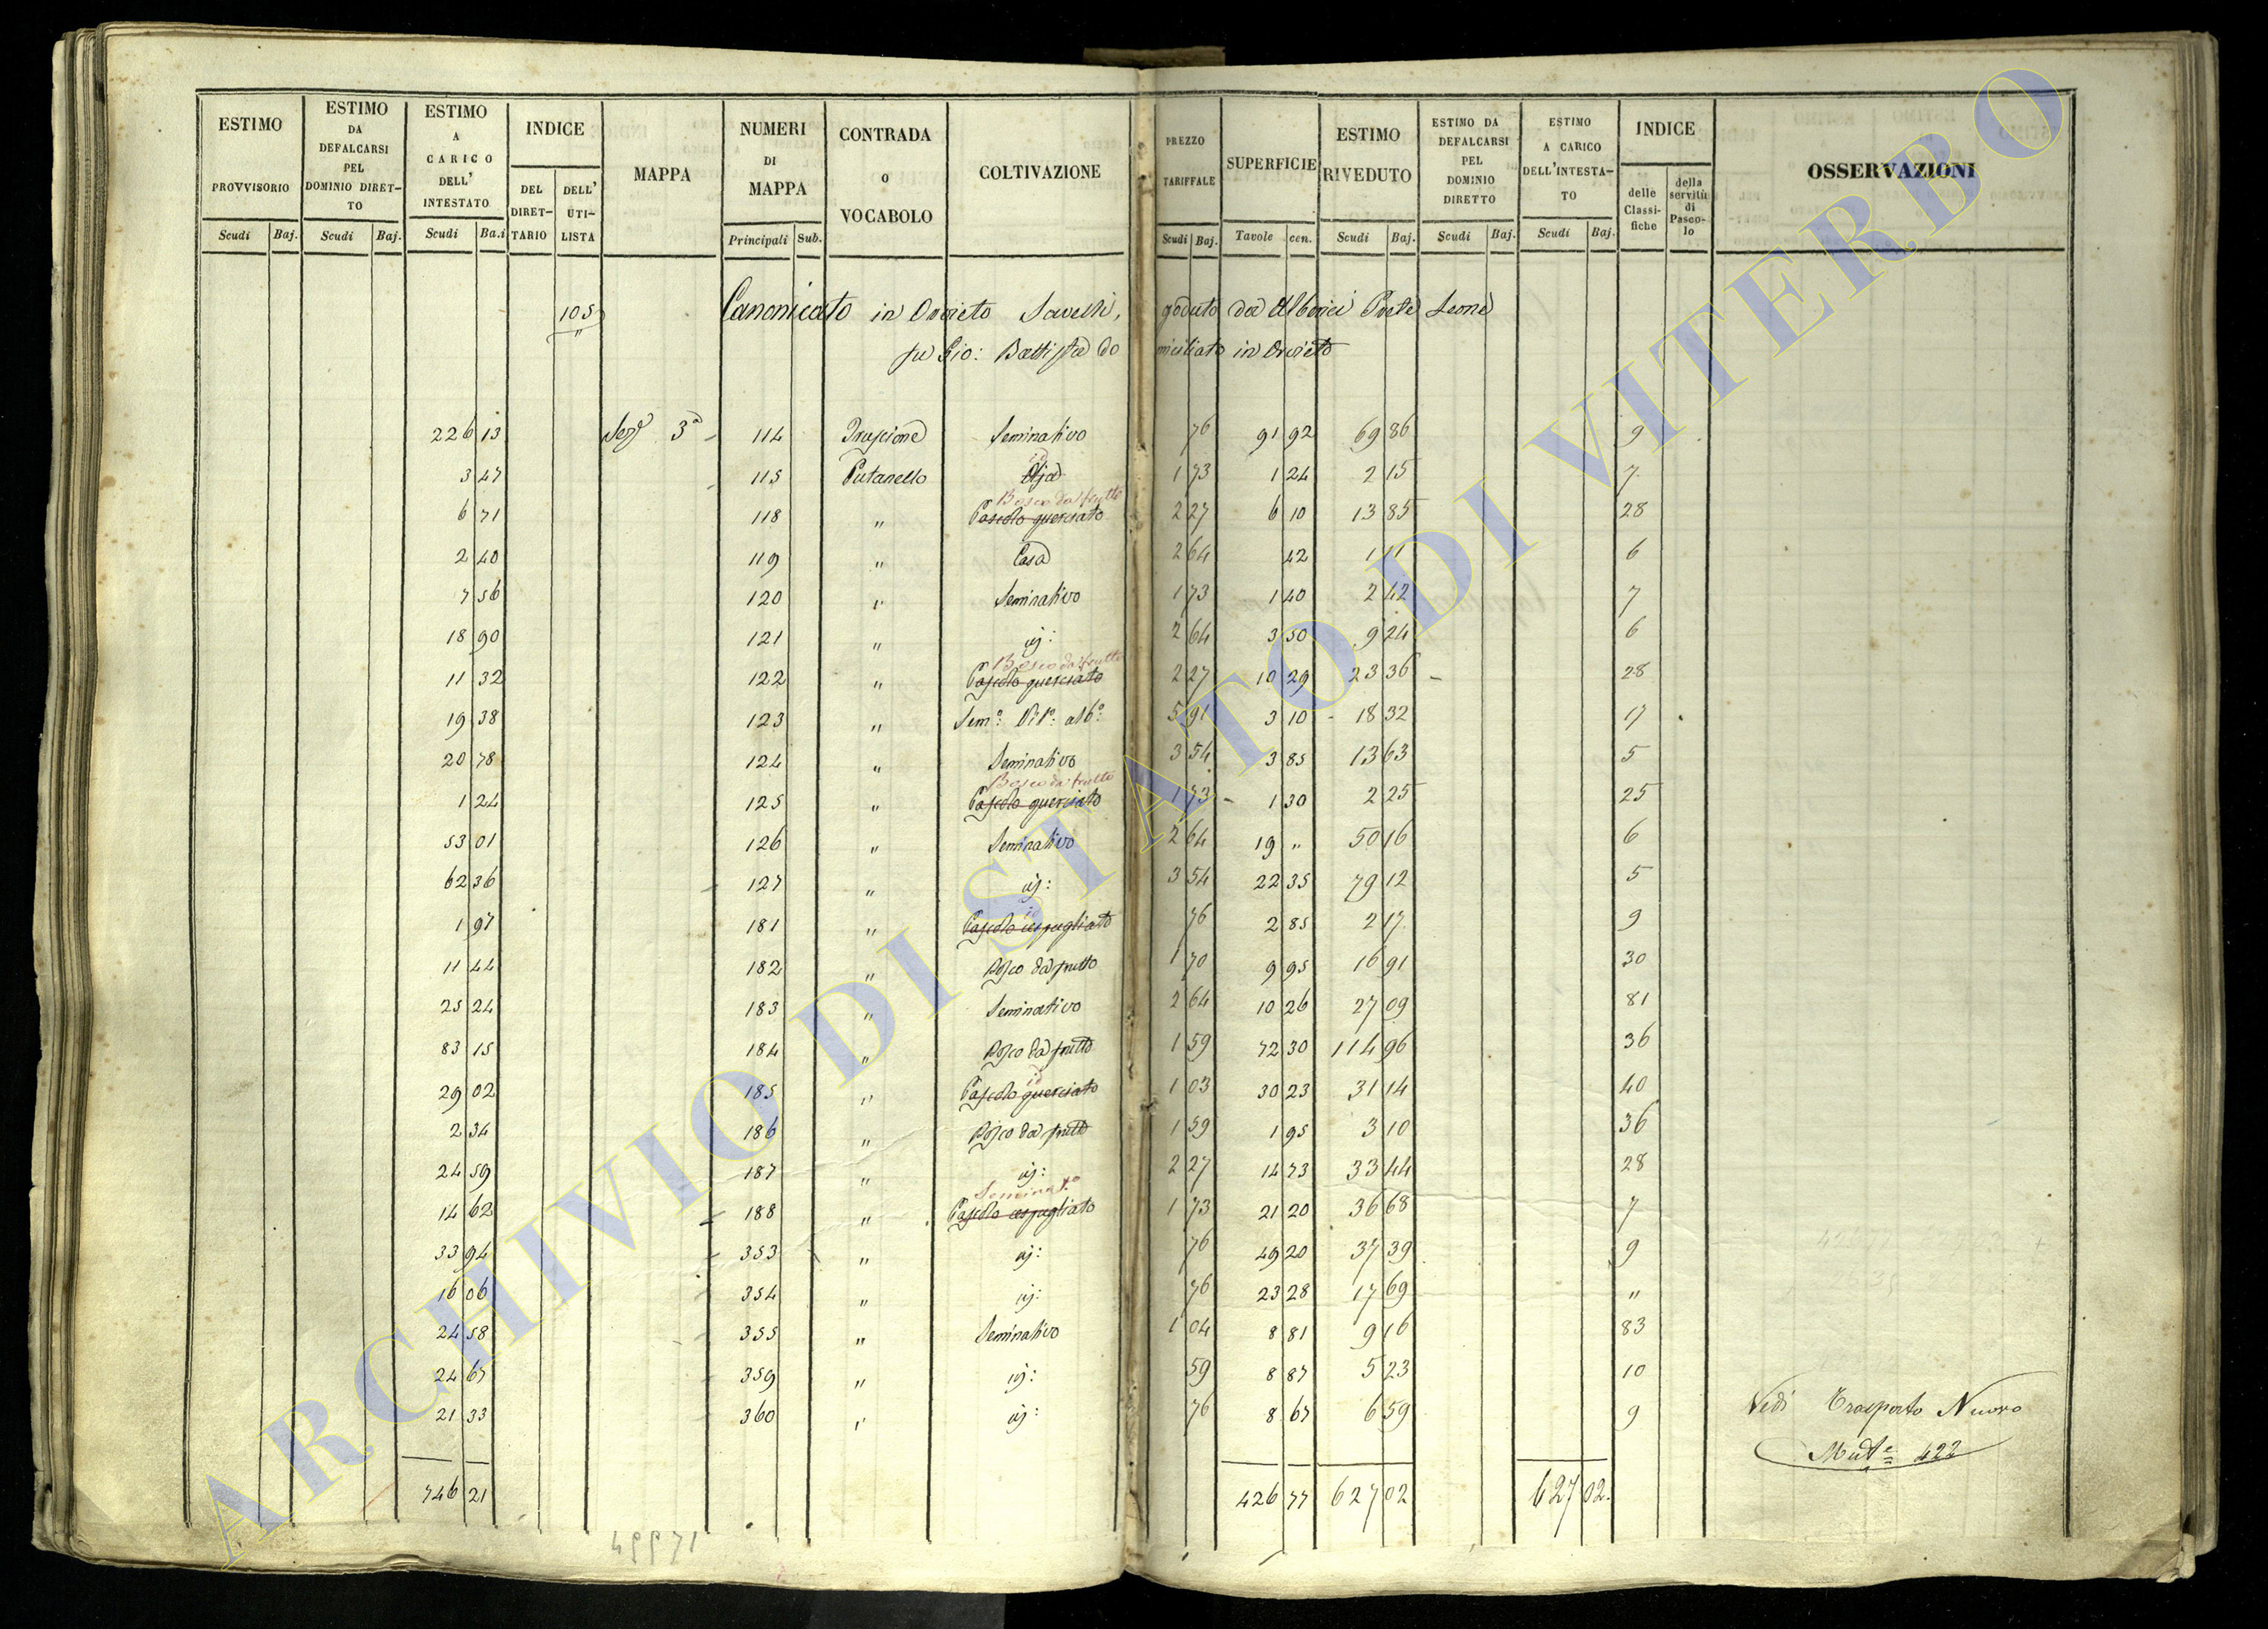 ESTIMO PROVVISORIO Scudi Baj.
ESTIMO DA DEFALCARSI PEL DOMINIO DIRETTO Scudi Baj.
ESTIMO A CARICO DELL' INTESTATO Scudi Ba.i
INDICE DEL DIRETTARIO DELL' UTILISTA
MAPPA
NUMERI DI MAPPA Principali Sub.
CONTRADA O VOCABOLO
COLTIVAZIONE
PREZZO TARIFFALE Scudi Baj.
SUPERFICIE Tavole cen.
ESTIMO RIVEDUTO Scudi Baj.
ESTIMO DA DEFALCARSI PEL DOMINIO DIRETTO Scudi Baj.
ESTIMO A CARICO DELL'INTESTATO Scudi Baj.
INDICE delle Classifiche della servitù di Pascolo
OSSERVAZIONI
105 Canonicato in Orvieto Savelli, goduto da Alberici Leone
fu Gio: Battista domiciliato in Orvieto
226 13 Sez.e 3a 114 Seminativo 76 91 92 69 86 9
3 47 115 Putanello Aja id 1 73 1 24 2 15 7
6 71 118 " Pascolo querciato Bosco da frutto 2 27 6 10 13 85 28
2 40 119 " Casa 2 64 42 1 11 6
7 56 120 " Seminativo 1 73 1 40 2 42 7
18 90 121 " id: 2 64 3 50 9 24 6
11 32 122 " Pascolo querciato Bosco da frutto 2 27 10 29 23 36 28
19 38 123 " Sem.o Vit.o alb.o 5 91 3 10 18 32 17
20 78 124 " Seminativo 3 54 3 85 13 63 5
1 24 125 " Pascolo querciato Bosco da frutto 1 73 1 30 2 25 25
53 01 126 " Seminativo 2 64 19 " 50 16 6
62 36 127 " id: 3 54 22 35 79 12 5
1 97 181 " Pascolo cespugliato id 76 2 85 2 17 9
11 44 182 " Bosco da frutto 1 70 9 95 16 91 30
25 24 183 " Seminativo 2 64 10 26 27 09 81
83 15 184 " Bosco da frutto 1 59 72 30 114 96 36
29 02 185 " Pascolo querciato id 1 03 30 23 31 14 40
2 34 186 " Bosco da frutto 1 59 1 95 3 10 36
24 59 187 " id: 2 27 14 73 33 44 28
14 62 188 " Pascolo cespugliato Seminat.o 1 73 21 20 36 68 7
33 94 353 " id: 76 49 20 37 39 9
16 06 354 " id: 76 23 28 17 69 "
24 58 355 " Seminativo 1 04 8 81 9 16 83
24 67 359 " id: 59 8 87 5 23 10
21 33 360 " id: 76 8 67 6 59 9
Vedi Trasporto Nuovo
Mut.e 422
746 21 426 77 627 02 627 02.
ARCHIVIO DI STATO DI VITERBO